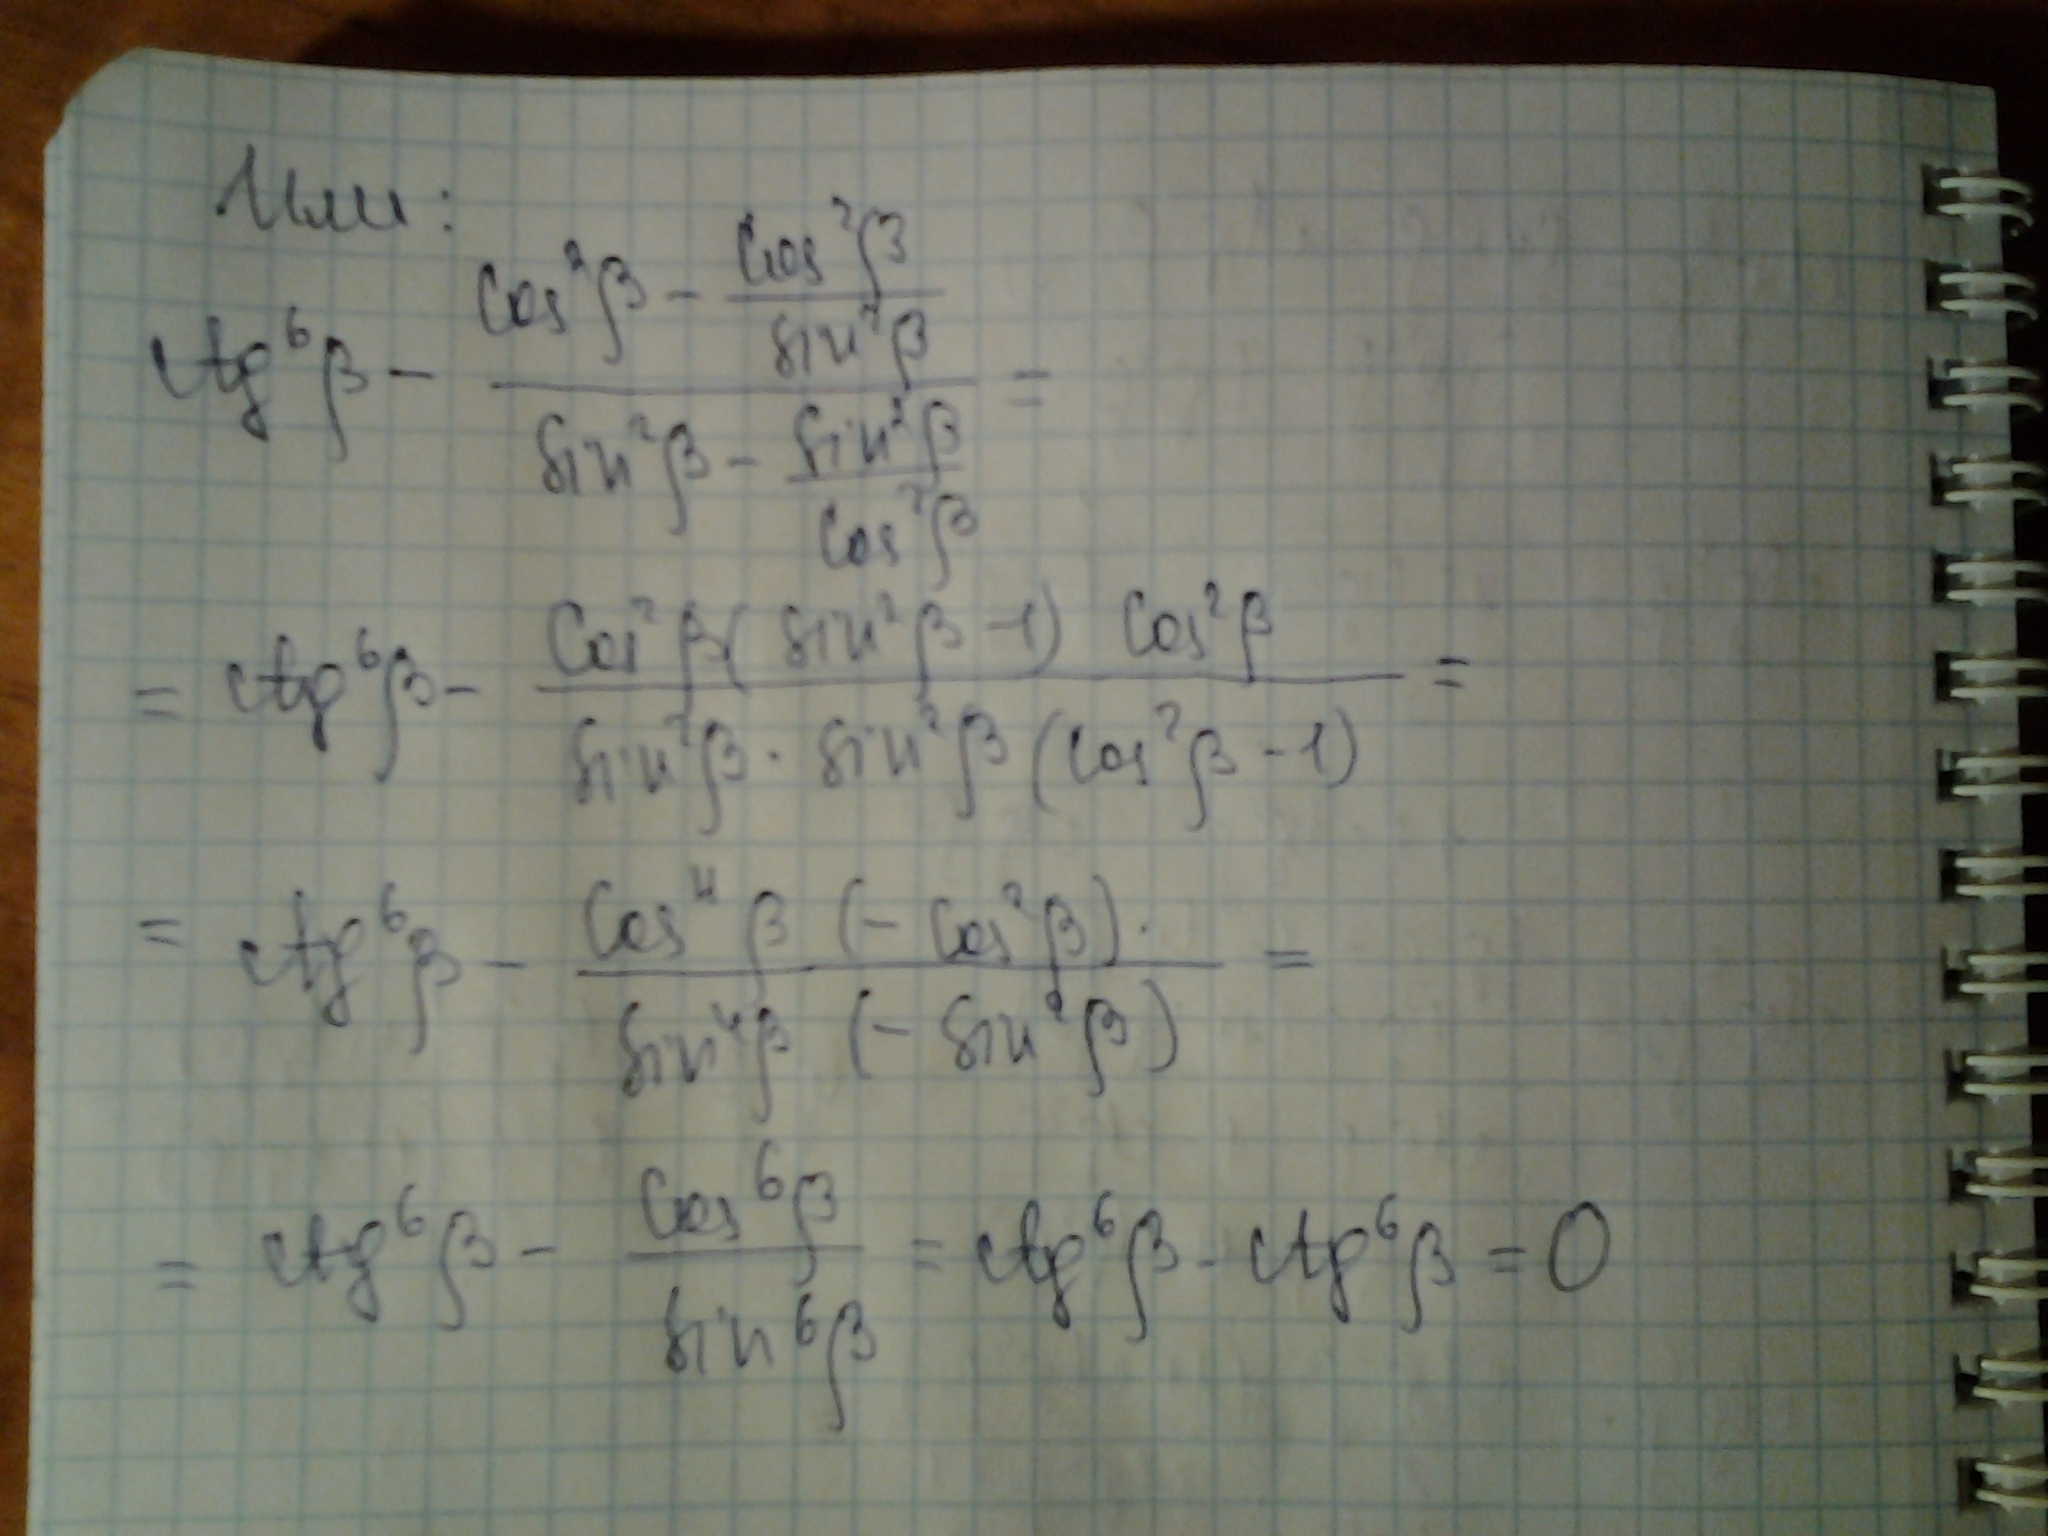 Или:
ctg⁶β − (cos²β − cos²β/sin²β)/(sin²β − sin²β/cos²β) =
= ctg⁶β − (cos²β(sin²β − 1) cos²β)/(sin²β · sin²β(cos²β − 1)) =
= ctg⁶β − (cos⁴β (−cos²β)·)/(sin⁴β (−sin²β)) =
= ctg⁶β − cos⁶β/sin⁶β = ctg⁶β − ctg⁶β = 0